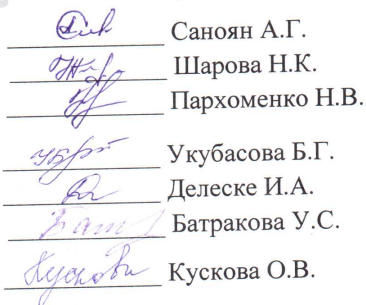 Саноян А.Г.
Шарова Н.К.
Пархоменко Н.В.
Укубасова Б.Г.
Делеске И.А.
Батракова У.С.
Кускова О.В.